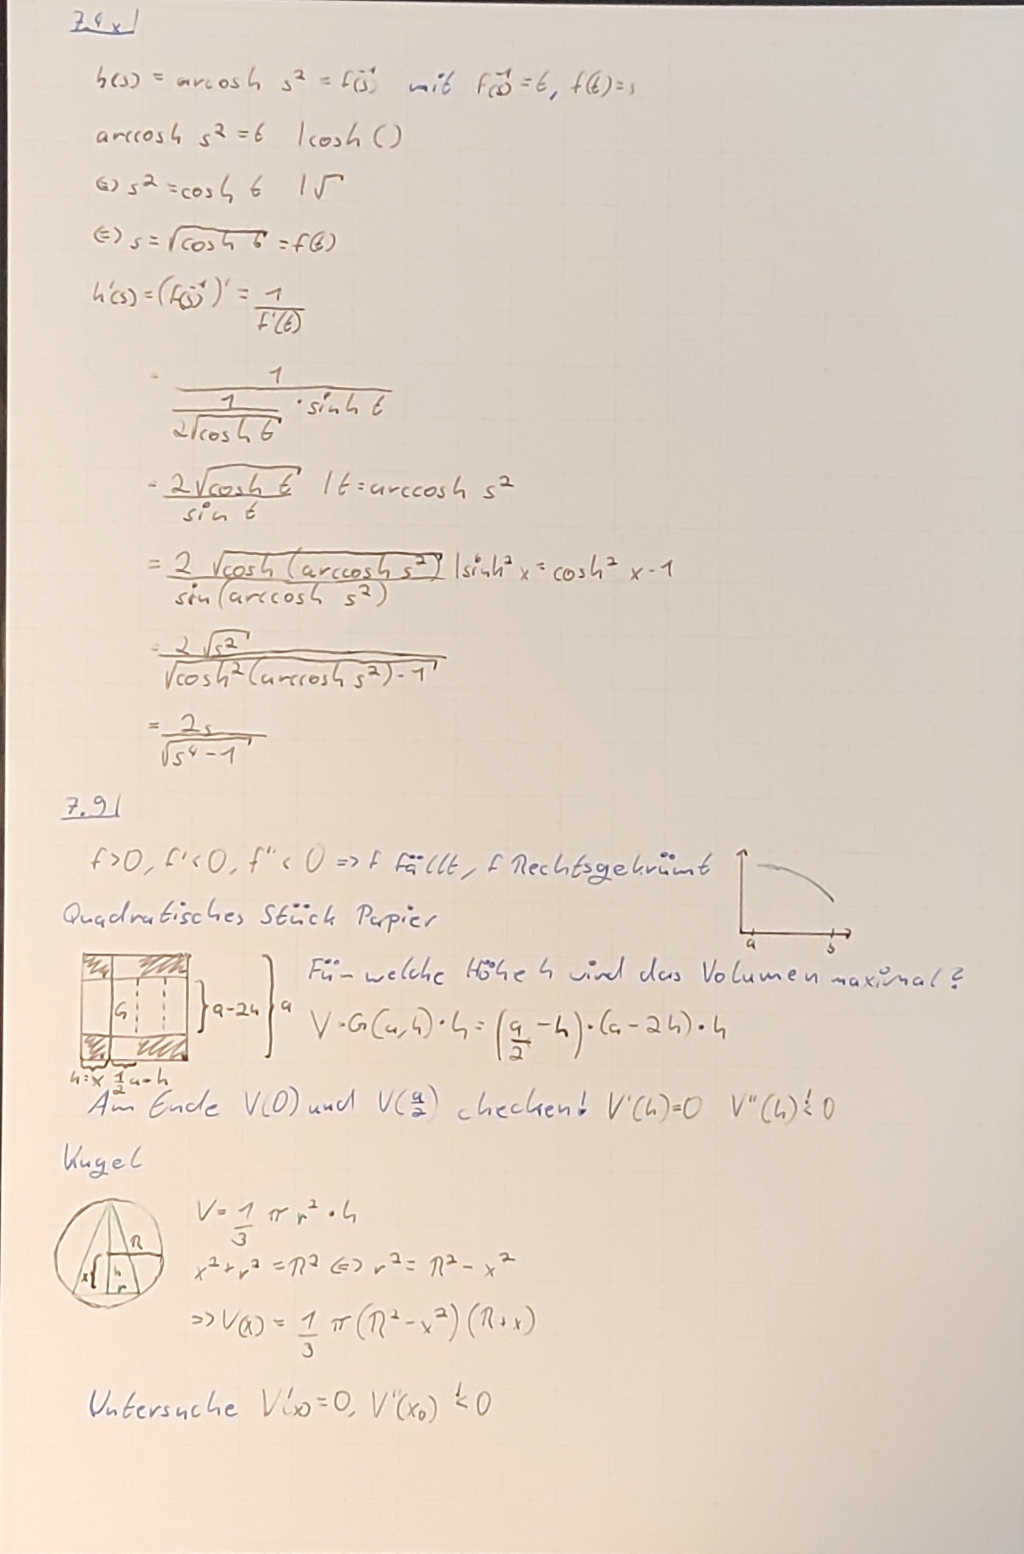 7.4x)
h(s) = arcosh s² = f⁻¹(s) mit f⁻¹(s) = t, f(t) = s
arccosh s² = t | cosh ()
⇔ s² = cosh t | √
⇔ s = √(cosh t) = f(t)
h'(s) = (f⁻¹(s))' = 1/f'(t)
= 1/(1/(2√(cosh t)) · sinh t)
= 2√(cosh t)/sin t | t = arccosh s²
= 2 √(cosh (arccosh s²))/sin(arccosh s²) | sinh² x = cosh² x - 1
= 2 √(s²)/√(cosh² (arccosh s²) - 1)
= 2s/√(s⁴ - 1)
7.9)
f>0, f'<0, f''<0 ⇒ f fällt, f Rechtsgekrümt
a s
Quadratisches Stück Papier
Für welche Höhe h wird das Volumen maximal?
G }a-2h }a
V = G(a,h) · h = (a/2 - h) · (a - 2h) · h
h=x 1/2 a-h
Am Ende V(0) und V(a/2) checken! V'(h)=0 V''(h) <! 0
Kugel
V = 1/3 π r² · h
R x{ h r
x² + r² = R² ⇔ r² = R² - x²
⇒ V(x) = 1/3 π (R² - x²) (R + x)
Untersuche V'(x) = 0, V''(x₀) <! 0